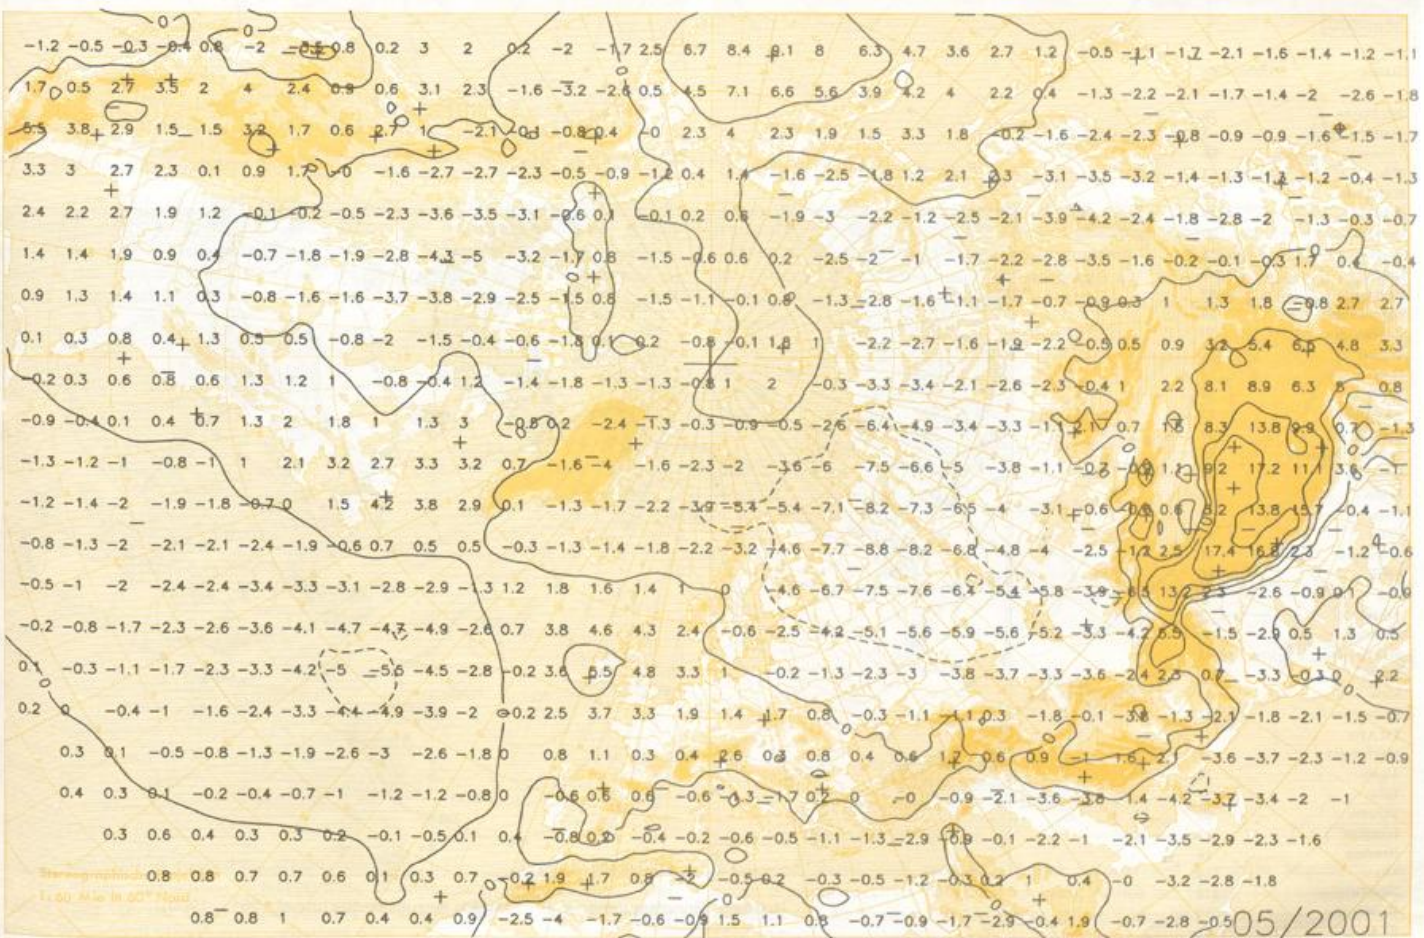 0 0
-1.2 -0.5 -0.3 -0.4 0.8 -2 0.8 0.2 3 2 0.2 -2 -1.7 2.5 6.7 8.4 9.1 8 6.3 4.7 3.6 2.7 1.2 -0.5 -1.1 -1.7 -2.1 -1.6 -1.4 -1.2 -1.1
1.7 0.5 2.7 3.5 2 4 2.4 0.9 0.6 3.1 2.3 -1.6 -3.2 -2.6 0.5 4.5 7.1 6.6 5.6 3.9 4.2 4 2.2 0.4 -1.3 -2.2 -2.1 -1.7 -1.4 -2 -2.6 -1.8
5.5 3.8 2.9 1.5 1.5 3.2 1.7 0.6 2.7 1 -2.1 -0.8 0.4 -0 2.3 4 2.3 1.9 1.5 3.3 1.8 -0.2 -1.6 -2.4 -2.3 -0.8 -0.9 -0.9 -1.6 -1.5 -1.7
3.3 3 2.7 2.3 0.1 0.9 1.7 -0 -1.6 -2.7 -2.7 -2.3 -0.5 -0.9 -1.2 0.4 1.4 -1.6 -2.5 -1.8 1.2 2.1 2.3 -3.1 -3.5 -3.2 -1.4 -1.3 -1.3 -1.2 -0.4 -1.3
2.4 2.2 2.7 1.9 1.2 -0.1 -0.2 -0.5 -2.3 -3.6 -3.5 -3.1 -0.6 0.1 -0.1 0.2 0.6 -1.9 -3 -2.2 -1.2 -2.5 -2.1 -3.9 -4.2 -2.4 -1.8 -2.8 -2 -1.3 -0.3 -0.7
1.4 1.4 1.9 0.9 0.4 -0.7 -1.8 -1.9 -2.8 -4.3 -5 -3.2 -1.7 0.8 -1.5 -0.6 0.6 0.2 -2.5 -2 -1 -1.7 -2.2 -2.8 -3.5 -1.6 -0.2 -0.1 -0.3 1.7 0.4 -0.4
0.9 1.3 1.4 1.1 0.3 -0.8 -1.6 -1.6 -3.7 -3.8 -2.9 -2.5 -1.5 0.8 -1.5 -1.1 -0.1 0.8 -1.3 -2.8 -1.6 -1.1 -1.7 -0.7 -0.9 0.3 1 1.3 1.8 -0.8 2.7 2.7
0.1 0.3 0.8 0.4 1.3 0.5 0.5 -0.8 -2 -1.5 -0.4 -0.6 -1.8 0.1 0.2 -0.8 -0.1 1.8 1 -2.2 -2.7 -1.6 -1.9 -2.2 -0.5 0.5 0.9 3.2 5.4 6.5 4.8 3.3
-0.2 0.3 0.6 0.8 0.6 1.3 1.2 1 -0.8 -0.4 1.2 -1.4 -1.8 -1.3 -1.3 -0.8 1 2 -0.3 -3.3 -3.4 -2.1 -2.6 -2.3 -0.4 1 2.2 8.1 8.9 6.3 0.8
-0.9 -0.4 0.1 0.4 0.7 1.3 2 1.8 1 1.3 3 -0.8 0.2 -2.4 -1.3 -0.3 -0.9 -0.5 -2.6 -6.4 -4.9 -3.4 -3.3 -1.1 2.1 0.7 1.6 8.3 13.8 9.9 0.7 -1.3
-1.3 -1.2 -1 -0.8 -1 1 2.1 3.2 2.7 3.3 3.2 0.7 -1.6 -4 -1.6 -2.3 -2 -3.6 -6 -7.5 -6.6 -5 -3.8 -1.1 -0.7 1.1 9.2 17.2 11.1 3.6 -1
-1.2 -1.4 -2 -1.9 -1.8 -0.7 0 1.5 4.2 3.8 2.9 0.1 -1.3 -1.7 -2.2 -3.9 -5.4 -5.4 -7.1 -8.2 -7.3 -6.5 -4 -3.1 -0.6 0.6 13.8 15.7 -0.4 -1.1
-0.8 -1.3 -2 -2.1 -2.1 -2.4 -1.9 -0.6 0.7 0.5 0.5 -0.3 -1.3 -1.4 -1.8 -2.2 -3.2 -4.6 -7.7 -8.8 -8.2 -6.8 -4.8 -4 -2.5 -1.2 2.5 17.4 16.8 2.3 -1.2 -0.6
-0.5 -1 -2 -2.4 -2.4 -3.4 -3.3 -3.1 -2.8 -2.9 -1.3 1.2 1.8 1.6 1.4 1 0 -4.6 -6.7 -7.5 -7.6 -6.4 -5.4 -5.8 -3.9 13.2 2.3 -2.6 -0.9 0.1 -0.9
-0.2 -0.8 -1.7 -2.3 -2.6 -3.6 -4.1 -4.7 -4.7 -4.9 -2.6 0.7 3.8 4.6 4.3 2.4 -0.6 -2.5 -4.2 -5.1 -5.6 -5.9 -5.6 -5.2 -3.3 -4.2 6.5 -1.5 -2.9 0.5 1.3 0.5
0.1 -0.3 -1.1 -1.7 -2.3 -3.3 -4.2 -5 -5.6 -4.5 -2.8 -0.2 3.6 5.5 4.8 3.3 1 -0.2 -1.3 -2.3 -3 -3.8 -3.7 -3.3 -3.6 -2.4 2.3 0.7 -3.3 -0.3 0 2.2
0.2 0 -0.4 -1 -1.6 -2.4 -3.3 -4.4 -4.9 -3.9 -2 -0.2 2.5 3.7 3.3 1.9 1.4 1.7 0.8 -0.3 -1.1 -1.1 0.3 -1.8 -0.1 -3.8 -1.3 -2.1 -1.8 -2.1 -1.5 -0.7
0.3 0.1 -0.5 -0.8 -1.3 -1.9 -2.6 -3 -2.6 -1.8 0 0.8 1.1 0.3 0.4 2.6 0.3 0.8 0.4 0.6 1.7 0.6 0.9 -1 1.6 2.1 -3.6 -3.7 -2.3 -1.2 -0.9
0.4 0.3 0.1 -0.2 -0.4 -0.7 -1 -1.2 -1.2 -0.8 0 -0.6 0.6 0.6 -0.6 -1.3 -1.7 0.2 0 -0 -0.9 -2.1 -3.6 -3.8 1.4 -4.2 -3.7 -3.4 -2 -1
0.3 0.6 0.4 0.3 0.3 0.2 -0.1 -0.5 0.1 0.4 -0.8 0.2 -0.4 -0.2 -0.6 -0.5 -1.1 -1.3 -2.9 -0.9 -0.1 -2.2 -1 -2.1 -3.5 -2.9 -2.3 -1.6
0.8 0.8 0.7 0.7 0.6 0.1 0.3 0.7 -0.2 1.9 1.7 0.8 -2 -0.5 0.2 -0.3 -0.5 -1.2 -0.3 0.2 1 0.4 -0 -3.2 -2.8 -1.8
0.8 0.8 1 0.7 0.4 0.4 0.9 -2.5 -4 -1.7 -0.6 -0.9 1.5 1.1 0.8 -0.7 -0.9 -1.7 -2.9 -0.4 1.9 -0.7 -2.8 -0.5
05/2001